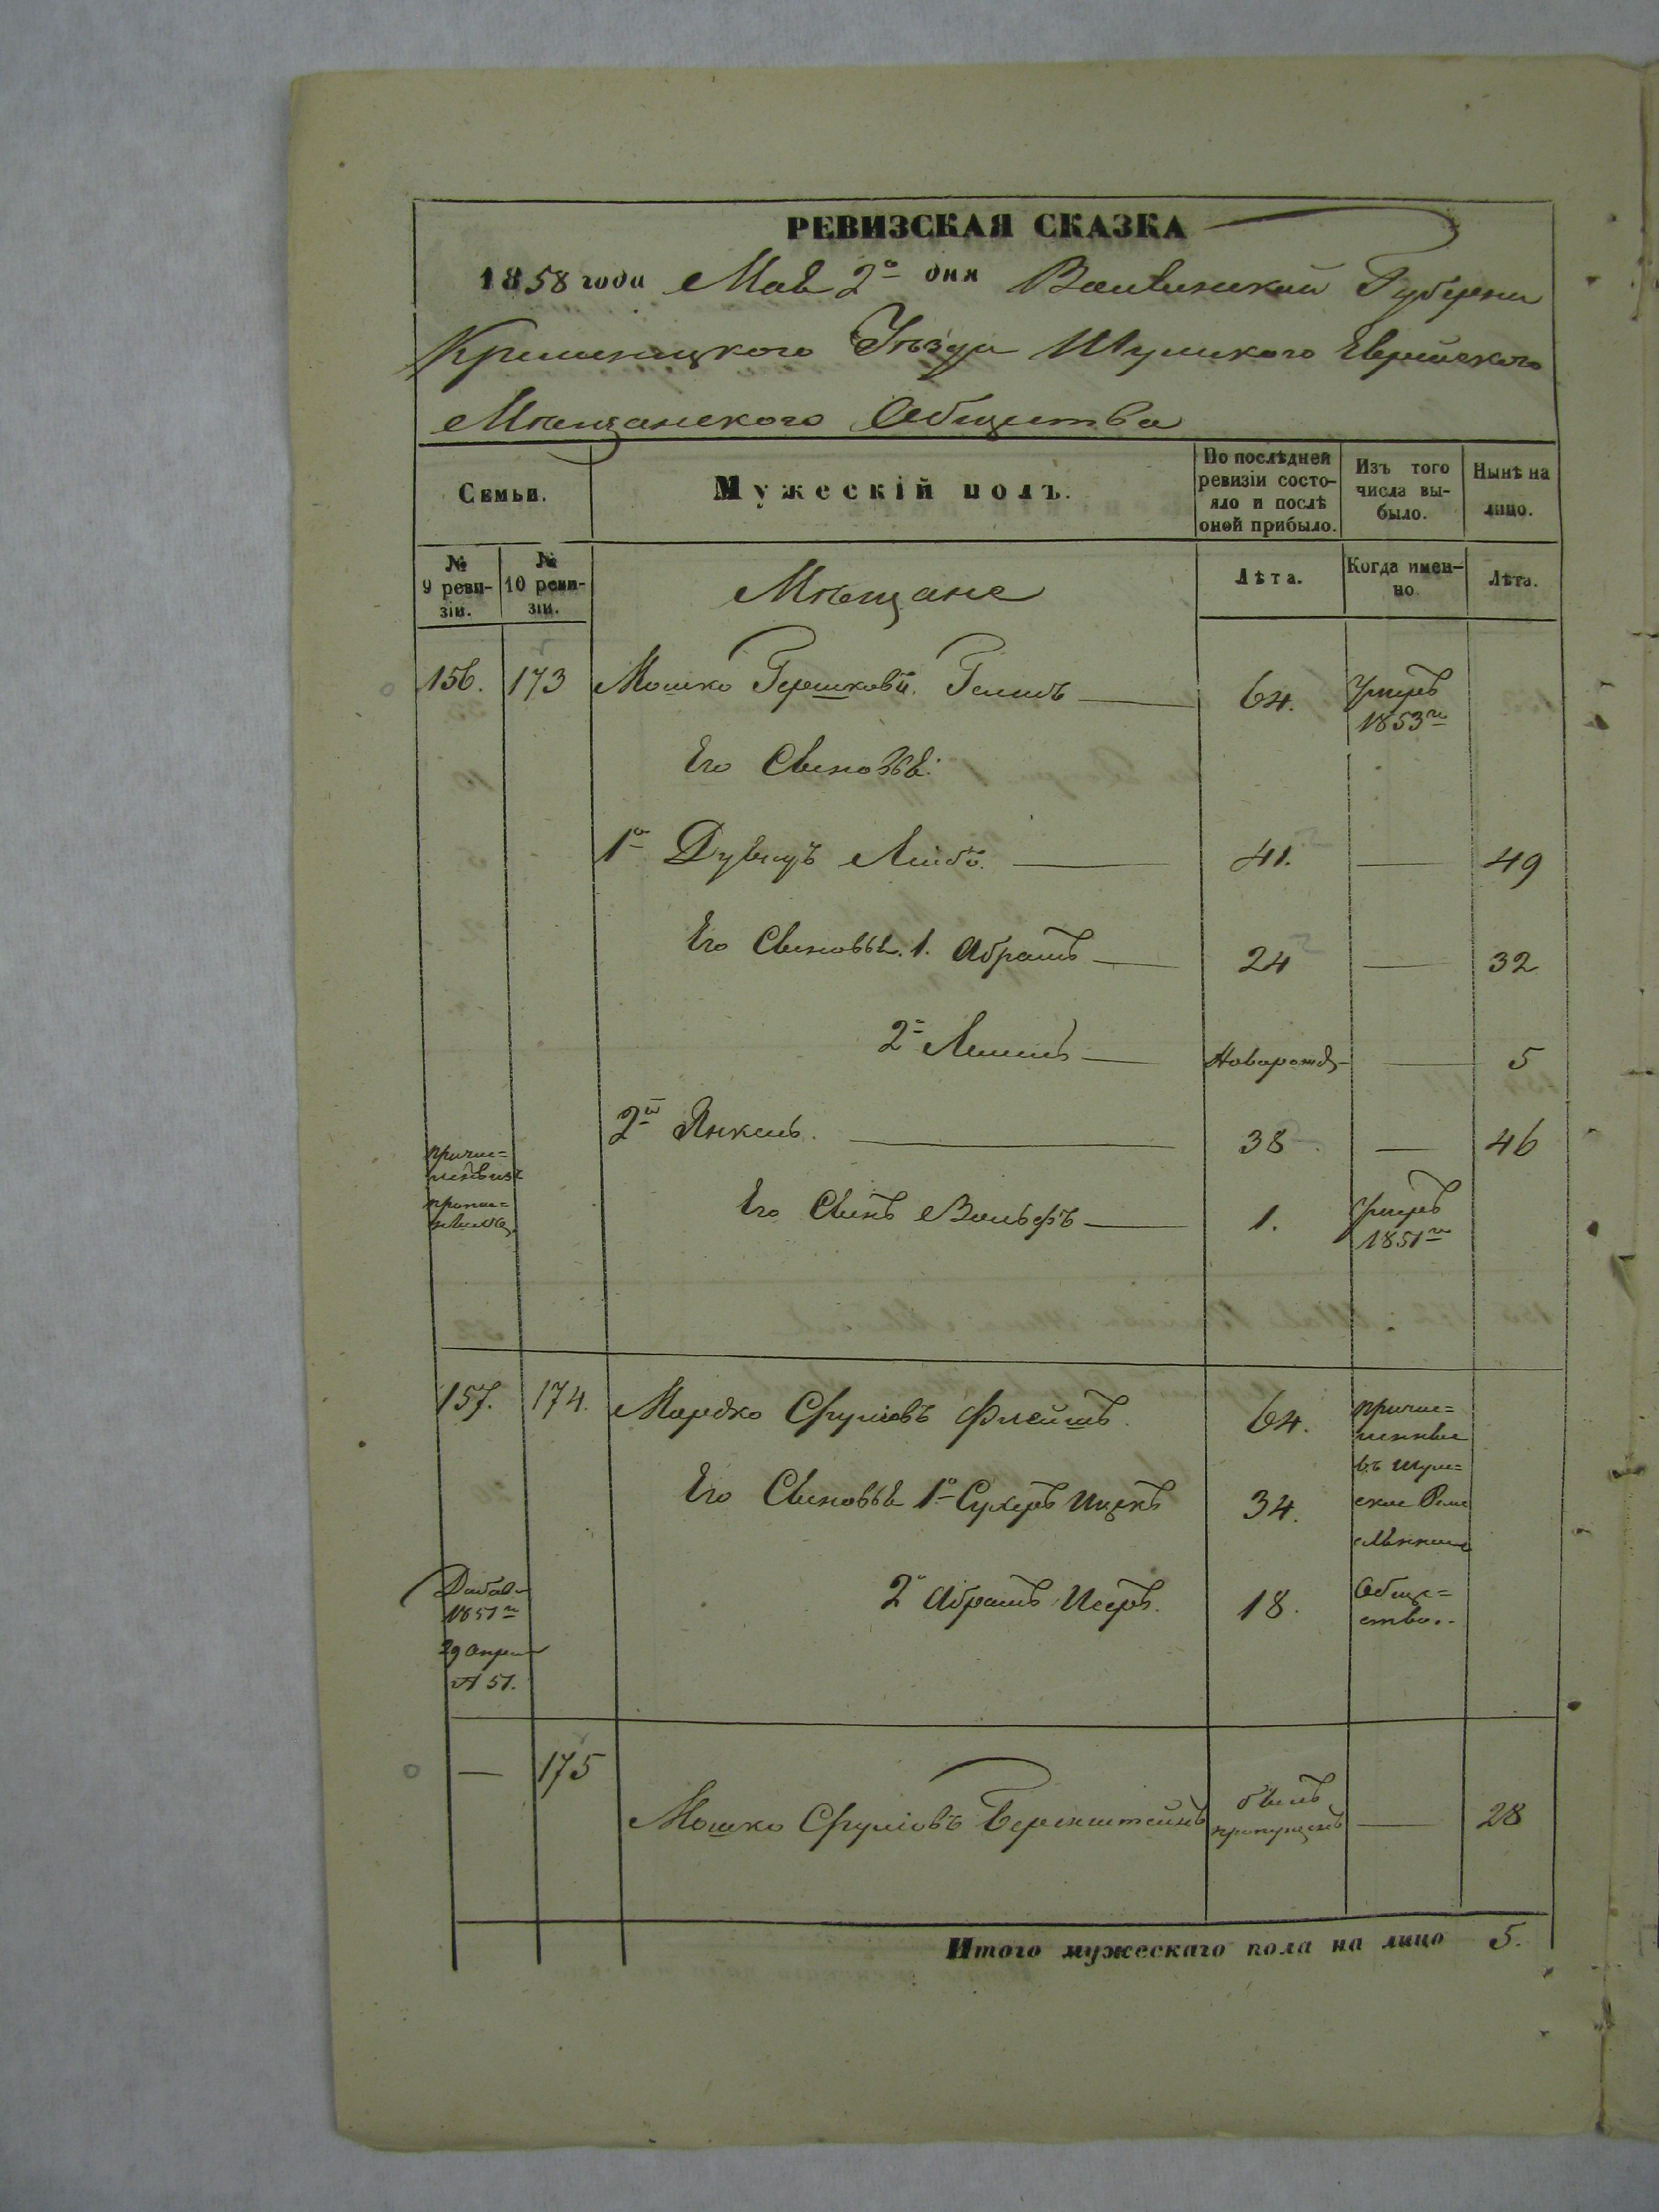 РЕВИЗСКАЯ СКАЗКА
1858 года Мая 2го дня Волынской Губерни
Кременецкого Уъзда Шумского Еврейского
Мѣщанского Общества
Семьи.
Мужескій полъ.
По послѣдней ревизіи состояло и послѣ оной прибыло.
Изъ того числа выбыло.
Нынѣ на лицо.
№ 9 ревизіи.
№ 10 ревизіи.
Мѣщане
Лѣта.
Когда именно
Лѣта.
156. 173 Мошко Гершкови. 64. Умеръ 1853го
Его Сыновья:
1й Лейбъ. 41. — 49
Его Сыновья. 1. Абрамъ 24 — 32
2й Новорожд — 5
2й Янкель. 38 — 46
Его Сынъ Вольфъ 1. Умеръ 1851го
157. 174. Мордко Сруліовъ 64. причи=
сленные
въ Шум=
ские Реме
сленные
Его Сыновья 1й Сухеръ Ицекъ 34.
2й Абрамъ Исеръ. 18. Обще=
ство.
1851го
29 Апреля
№ 51.
— 175 Мошко Сруліовъ Беренштейнъ былъ пропущенъ — 28
Итого мужескаго пола на лицо 5.